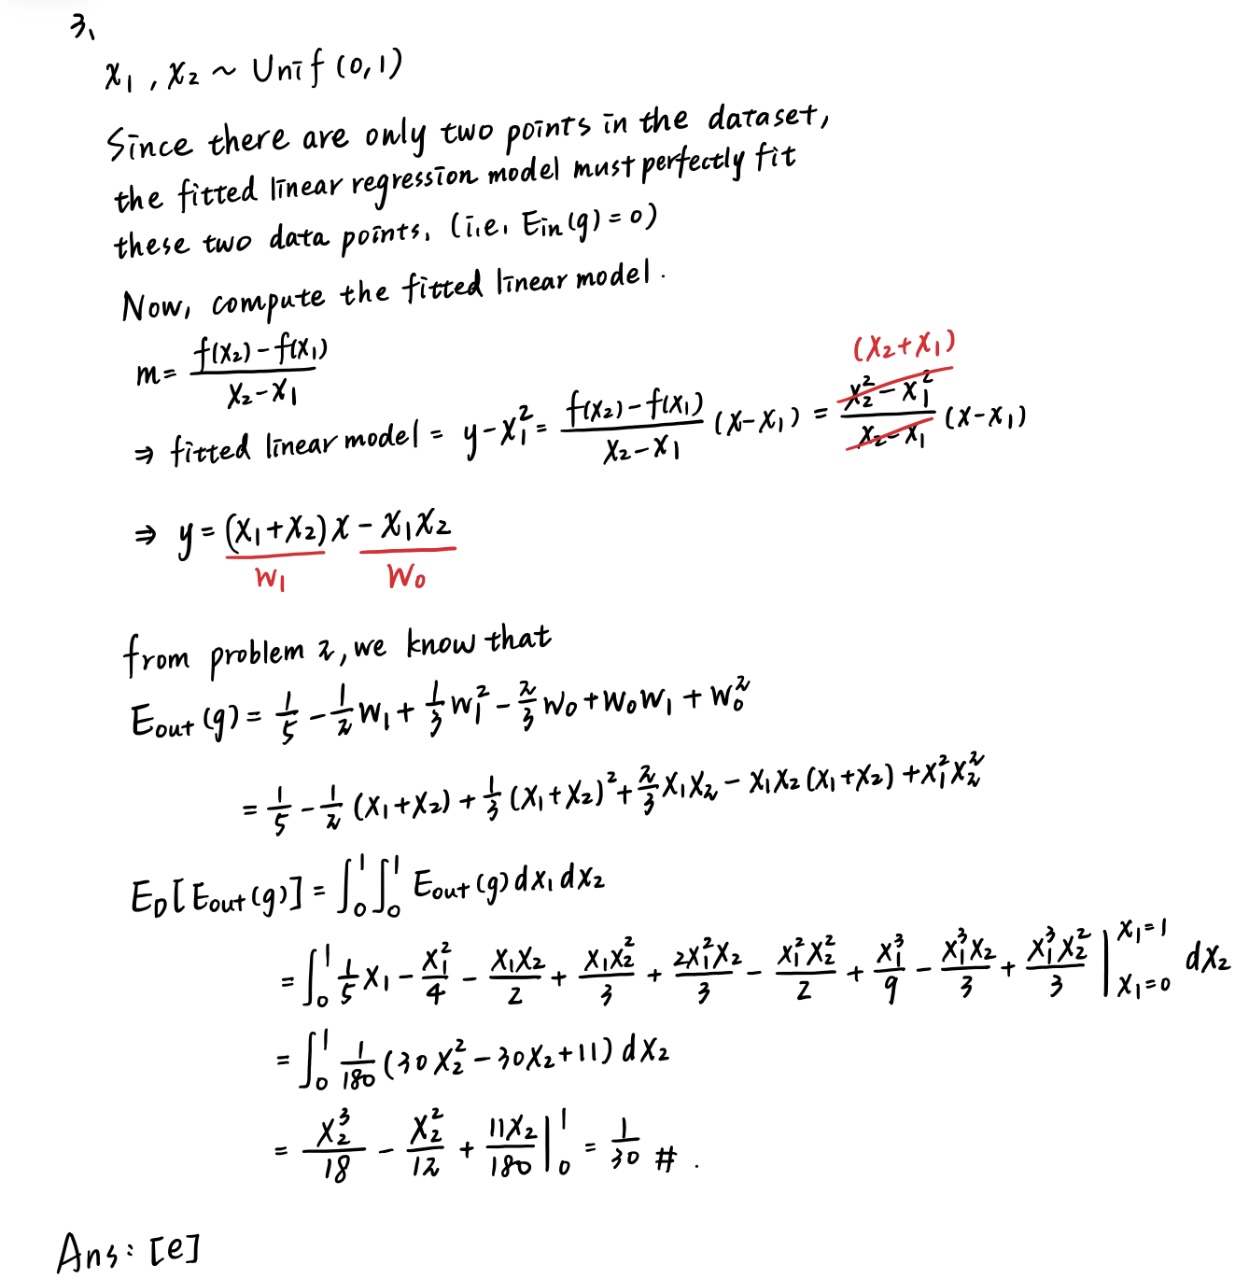 3.
x₁, x₂ ~ Unif (0,1)
Since there are only two points in the dataset,
the fitted linear regression model must perfectly fit
these two data points. (i.e. E_in(g) = 0)
Now, compute the fitted linear model.
m = (f(x₂) - f(x₁)) / (x₂ - x₁)
(x₂ + x₁)
⇒ fitted linear model = y - x₁² = (f(x₂) - f(x₁)) / (x₂ - x₁) (x - x₁) = (x₂² - x₁²) / (x₂ - x₁) (x - x₁)
⇒ y = (x₁ + x₂) x - x₁x₂
w₁ w₀
from problem 2, we know that
E_out(g) = 1/5 - 1/2 w₁ + 1/3 w₁² - 2/3 w₀ + w₀w₁ + w₀²
= 1/5 - 1/2 (x₁ + x₂) + 1/3 (x₁ + x₂)² + 2/3 x₁x₂ - x₁x₂ (x₁ + x₂) + x₁²x₂²
E_D[E_out(g)] = ∫₀¹ ∫₀¹ E_out(g) dx₁ dx₂
= ∫₀¹ 1/5 x₁ - x₁²/4 - x₁x₂/2 + x₁x₂²/3 + 2x₁²x₂/3 - x₁²x₂²/2 + x₁³/9 - x₁³x₂/3 + x₁³x₂²/3 |_{x₁=0}^{x₁=1} dx₂
= ∫₀¹ 1/180 (30x₂² - 30x₂ + 11) dx₂
= x₂³/18 - x₂²/12 + 11x₂/180 |₀¹ = 1/30 #.
Ans: [e]